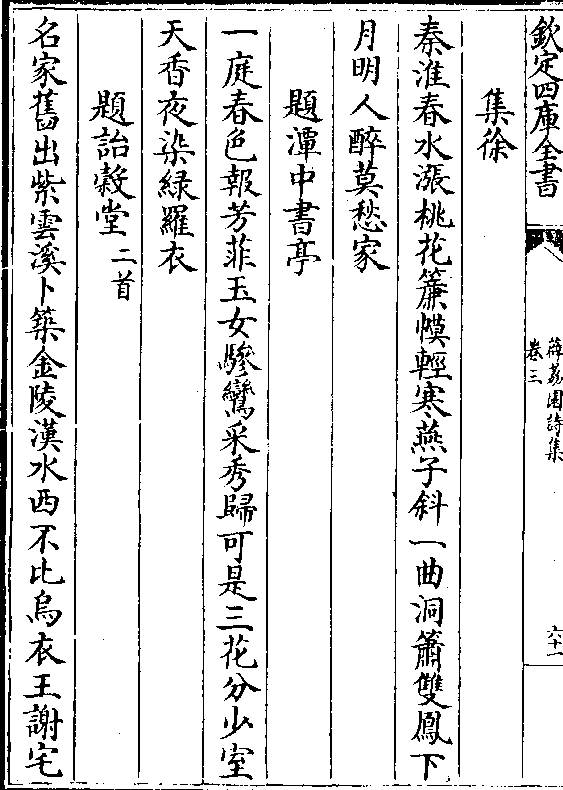 欽定四庫全書
薜荔園詩集
卷三
六十一
集徐
秦淮春水漲桃花簾幙輕寒燕子斜一曲洞簫雙鳳下
月明人醉莫愁家
題潭中書亭
一庭春色報芳菲玉女驂鸞采秀歸可是三花分少室
天香夜染綠羅衣
題詒穀堂二首
名家舊出紫雲溪卜築金陵漢水西不比烏衣王謝宅